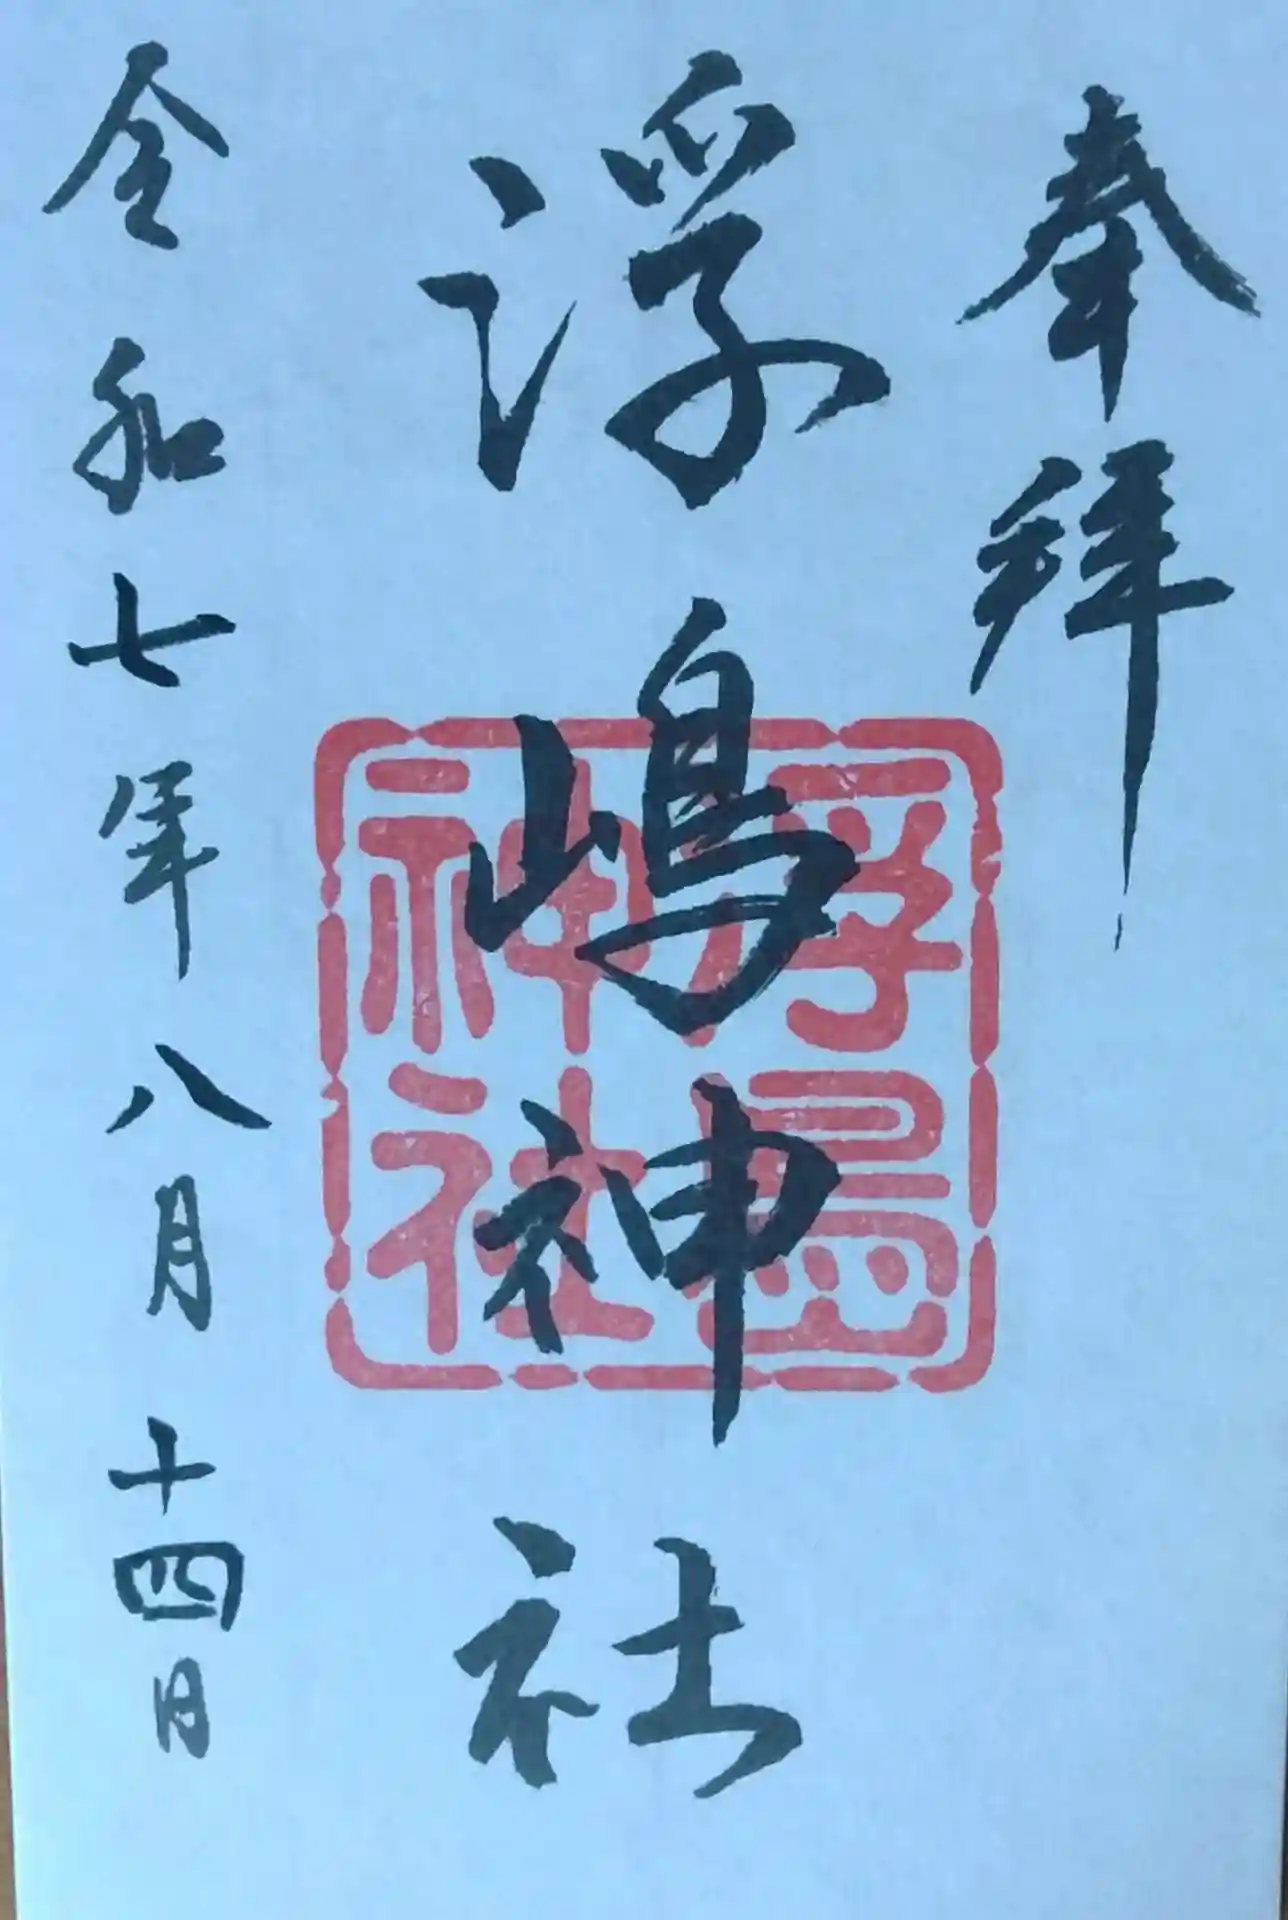 奉拝
浮嶋神社
浮島
神社
令和七年八月十四日